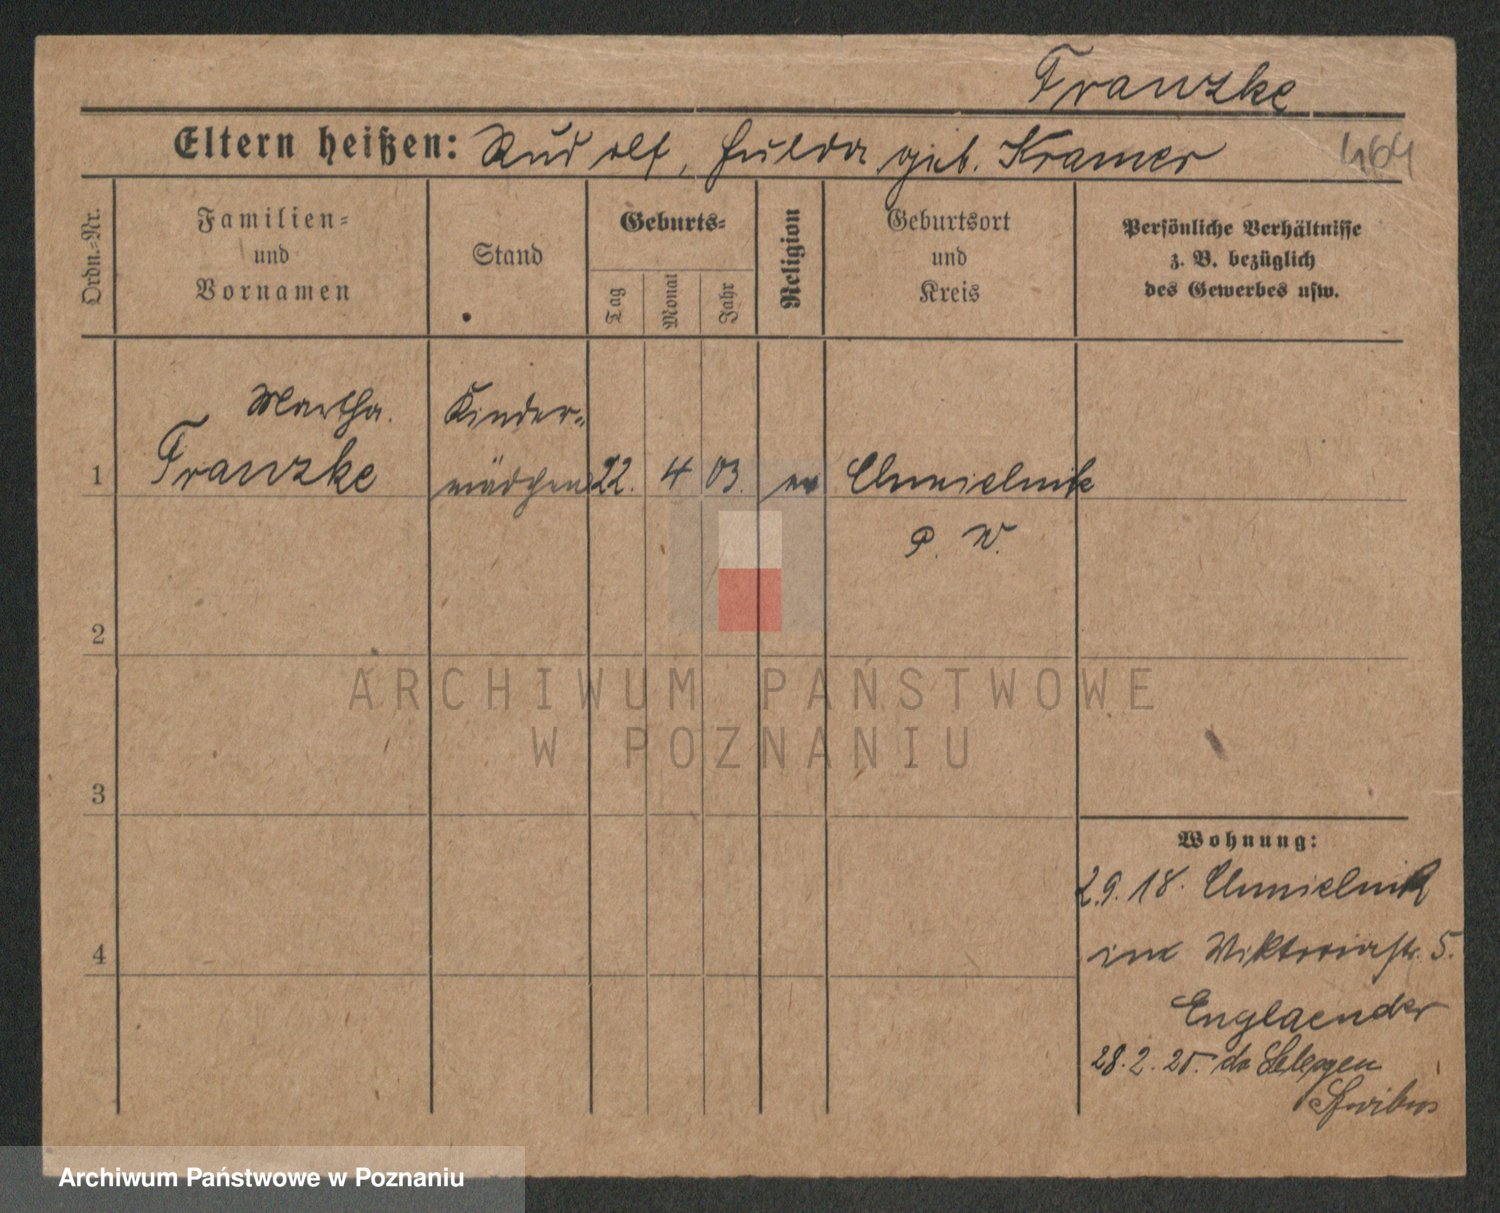 Franzke
Eltern heißen: Rudolf, Hulda geb. Kramer
464
Ordn.-Nr.
Familien-
und
Vornamen
Stand
Geburts-
Tag
Monat
Jahr
Religion
Geburtsort
und
Kreis
Persönliche Verhältnisse
z. B. bezüglich
des Gewerbes usw.
Martha Kinder-
1 Franzke mädchen 22. 4 03. ev Chmielnik
P. W.
2
ARCHIWUM PAŃSTWOWE
W POZNANIU
3
Wohnung:
2.9.18. Chmielnik
4
in Viktoriastr. 5.
Englaender
28.2.25. do
Archiwum Państwowe w Poznaniu